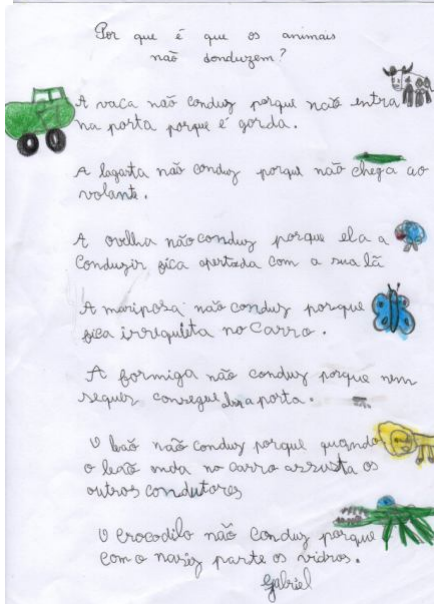 Por que é que os animais
não donduzem?
A vaca não conduz porque não entra
na porta porque é gorda.
A lagarta não conduz porque não chega ao
volante.
A ovelha não conduz porque ela a
conduzir fica apertada com a sua lã
A mariposa não conduz porque
fica irrequieta no carro.
A formiga não conduz porque nem
sequer consegue abrir a porta.
O leão não conduz porque quando
o leão anda no carro assusta os
outros condutores
O crocodilo não conduz porque
com o nariz parte os vidros.
Gabriel